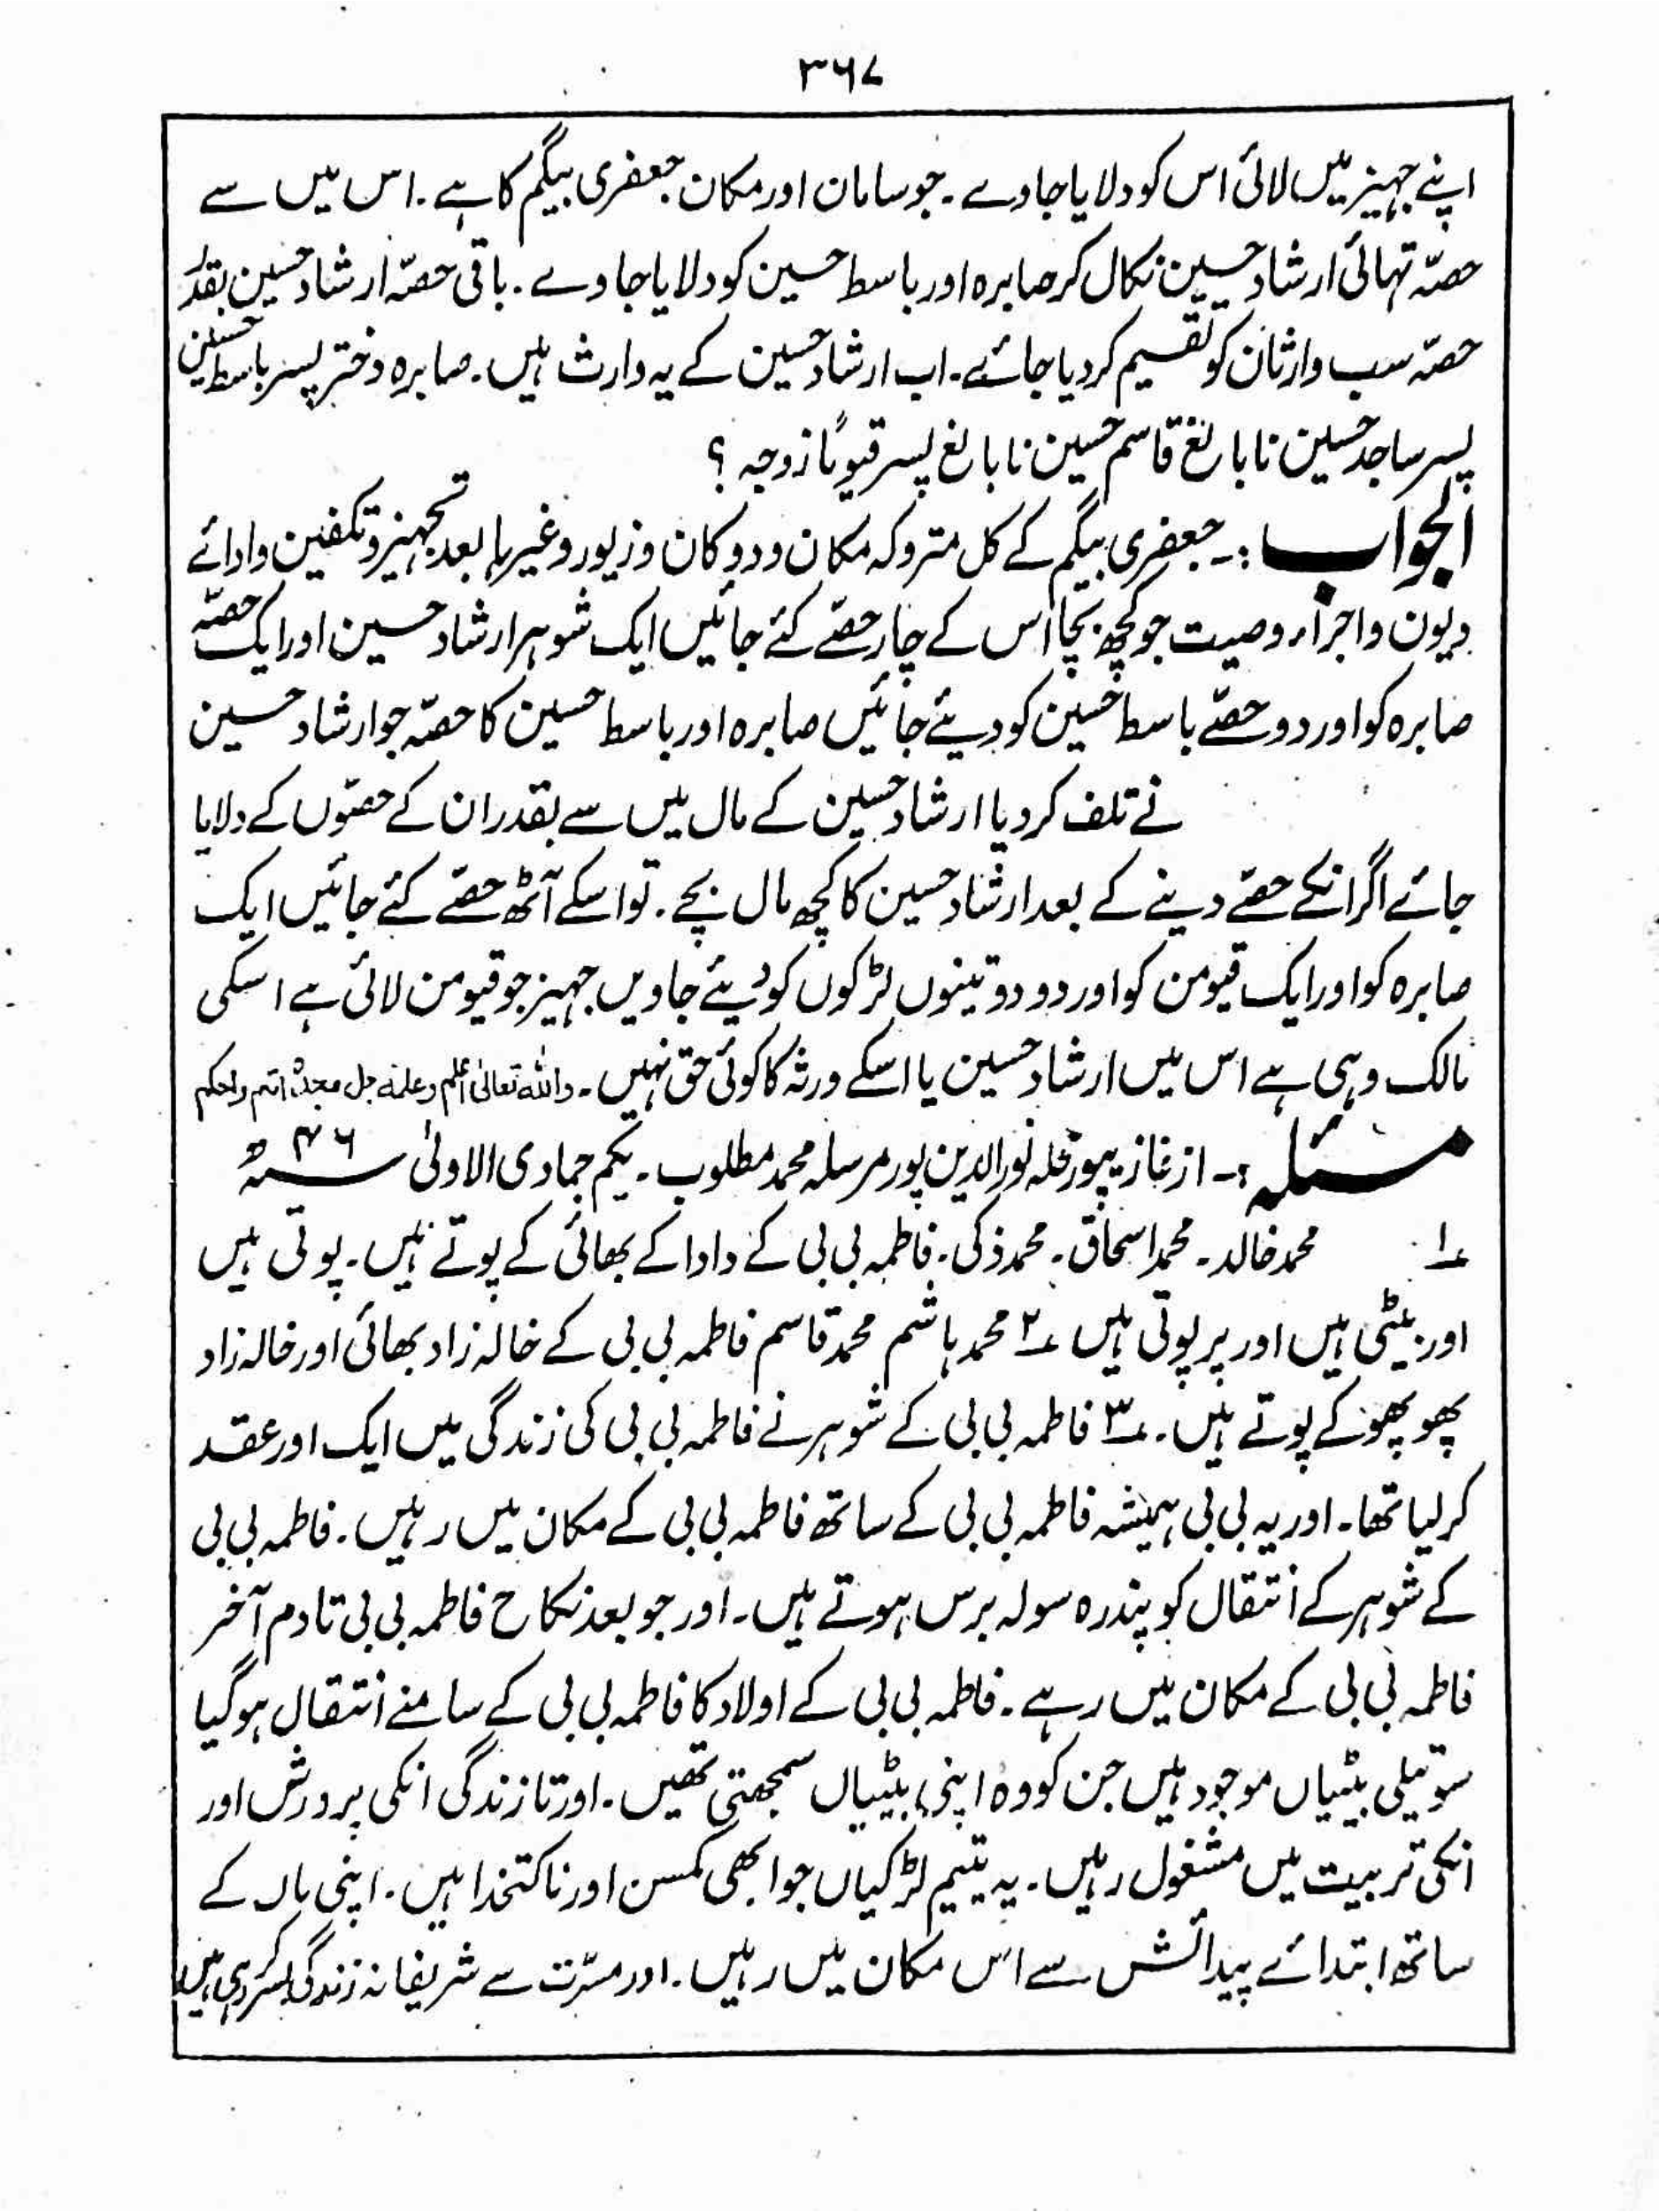 ۳۶۷
اپنے جہیز میں لائی اس کو دلایا جاوے۔ جو سامان اور مکان جعفری بیگم کا ہے۔ اس میں سے
حصّہ تہائی ارشاد حسین نکال کر صابرہ اور باسط حسین کو دلایا جاوے۔ باقی حصّہ ارشاد حسین بقدر
حصّہ سب وارثان کو تقسیم کر دیا جائے۔ اب ارشاد حسین کے یہ وارث ہیں۔ صابرہ دختر پسر باسط حسین
پسر ساجد حسین نابالغ قاسم حسین نابالغ پسر قیوماً زوجہ ؟
الجواب :۔ جعفری بیگم کے کل متروکہ مکان و دوکان و زیور وغیرہا بعد تجہیز و تکفین و ادائے
دیون و اجراء وصیت جو کچھ بچا اس کے چار حصّے کئے جائیں ایک شوہر ارشاد حسین اور ایک حصّہ
صابرہ کو اور دو حصّے باسط حسین کو دیئے جائیں صابرہ اور باسط حسین کا حصّہ جو ارشاد حسین
نے تلف کر دیا ارشاد حسین کے مال میں سے بقدر ان کے حصّوں کے دلایا
جائے اگر انکے حصّے دینے کے بعد ارشاد حسین کا کچھ مال بچے۔ تو اسکے آٹھ حصّے کئے جائیں ایک
صابرہ کو اور ایک قیومن کو اور دو دو تینوں لڑکوں کو دیئے جاویں جہیز جو قیومن لائی ہے اسکی
مالک وہی ہے اس میں ارشاد حسین یا اسکے ورثہ کا کوئی حق نہیں۔ واللہ تعالیٰ اعلم وعلمہ جل مجدہٗ اتم واحکم
مسئلہ :۔ از غازیپور محلہ نورالدین پور مرسلہ محمد مطلوب۔ یکم جمادی الاولیٰ سنہ ۴۶ھ
۱؎ محمد خالد۔ محمد اسحاق۔ محمد ذکی۔ فاطمہ بی بی کے دادا کے بھائی کے پوتے ہیں۔ پوتی ہیں
اور بیٹی ہیں اور پرپوتی ہیں ۲؎ محمد ہاشم محمد قاسم فاطمہ بی بی کے خالہ زاد بھائی اور خالہ زاد
پھوپھو کے پوتے ہیں۔ ۳؎ فاطمہ بی بی کے شوہر نے فاطمہ بی بی کی زندگی میں ایک اور عقد
کر لیا تھا۔ اور یہ بی بی ہمیشہ فاطمہ بی بی کے ساتھ فاطمہ بی بی کے مکان میں رہیں۔ فاطمہ بی بی
کے شوہر کے انتقال کو پندرہ سولہ برس ہوتے ہیں۔ اور جو بعد نکاح فاطمہ بی بی تا دم آخر
فاطمہ بی بی کے مکان میں رہے۔ فاطمہ بی بی کے اولاد کا فاطمہ بی بی کے سامنے انتقال ہو گیا
سوتیلی بیٹیاں موجود ہیں جن کو وہ اپنی بیٹیاں سمجھتی تھیں۔ اور تا زندگی انکی پرورش اور
انکی تربیت میں مشغول رہیں۔ یہ یتیم لڑکیاں جو ابھی کمسن اور ناکتخدا ہیں۔ اپنی ماں کے
ساتھ ابتدائے پیدائش سے اس مکان میں رہیں۔ اور مسرّت سے شریفانہ زندگی بسر کر رہی ہیں